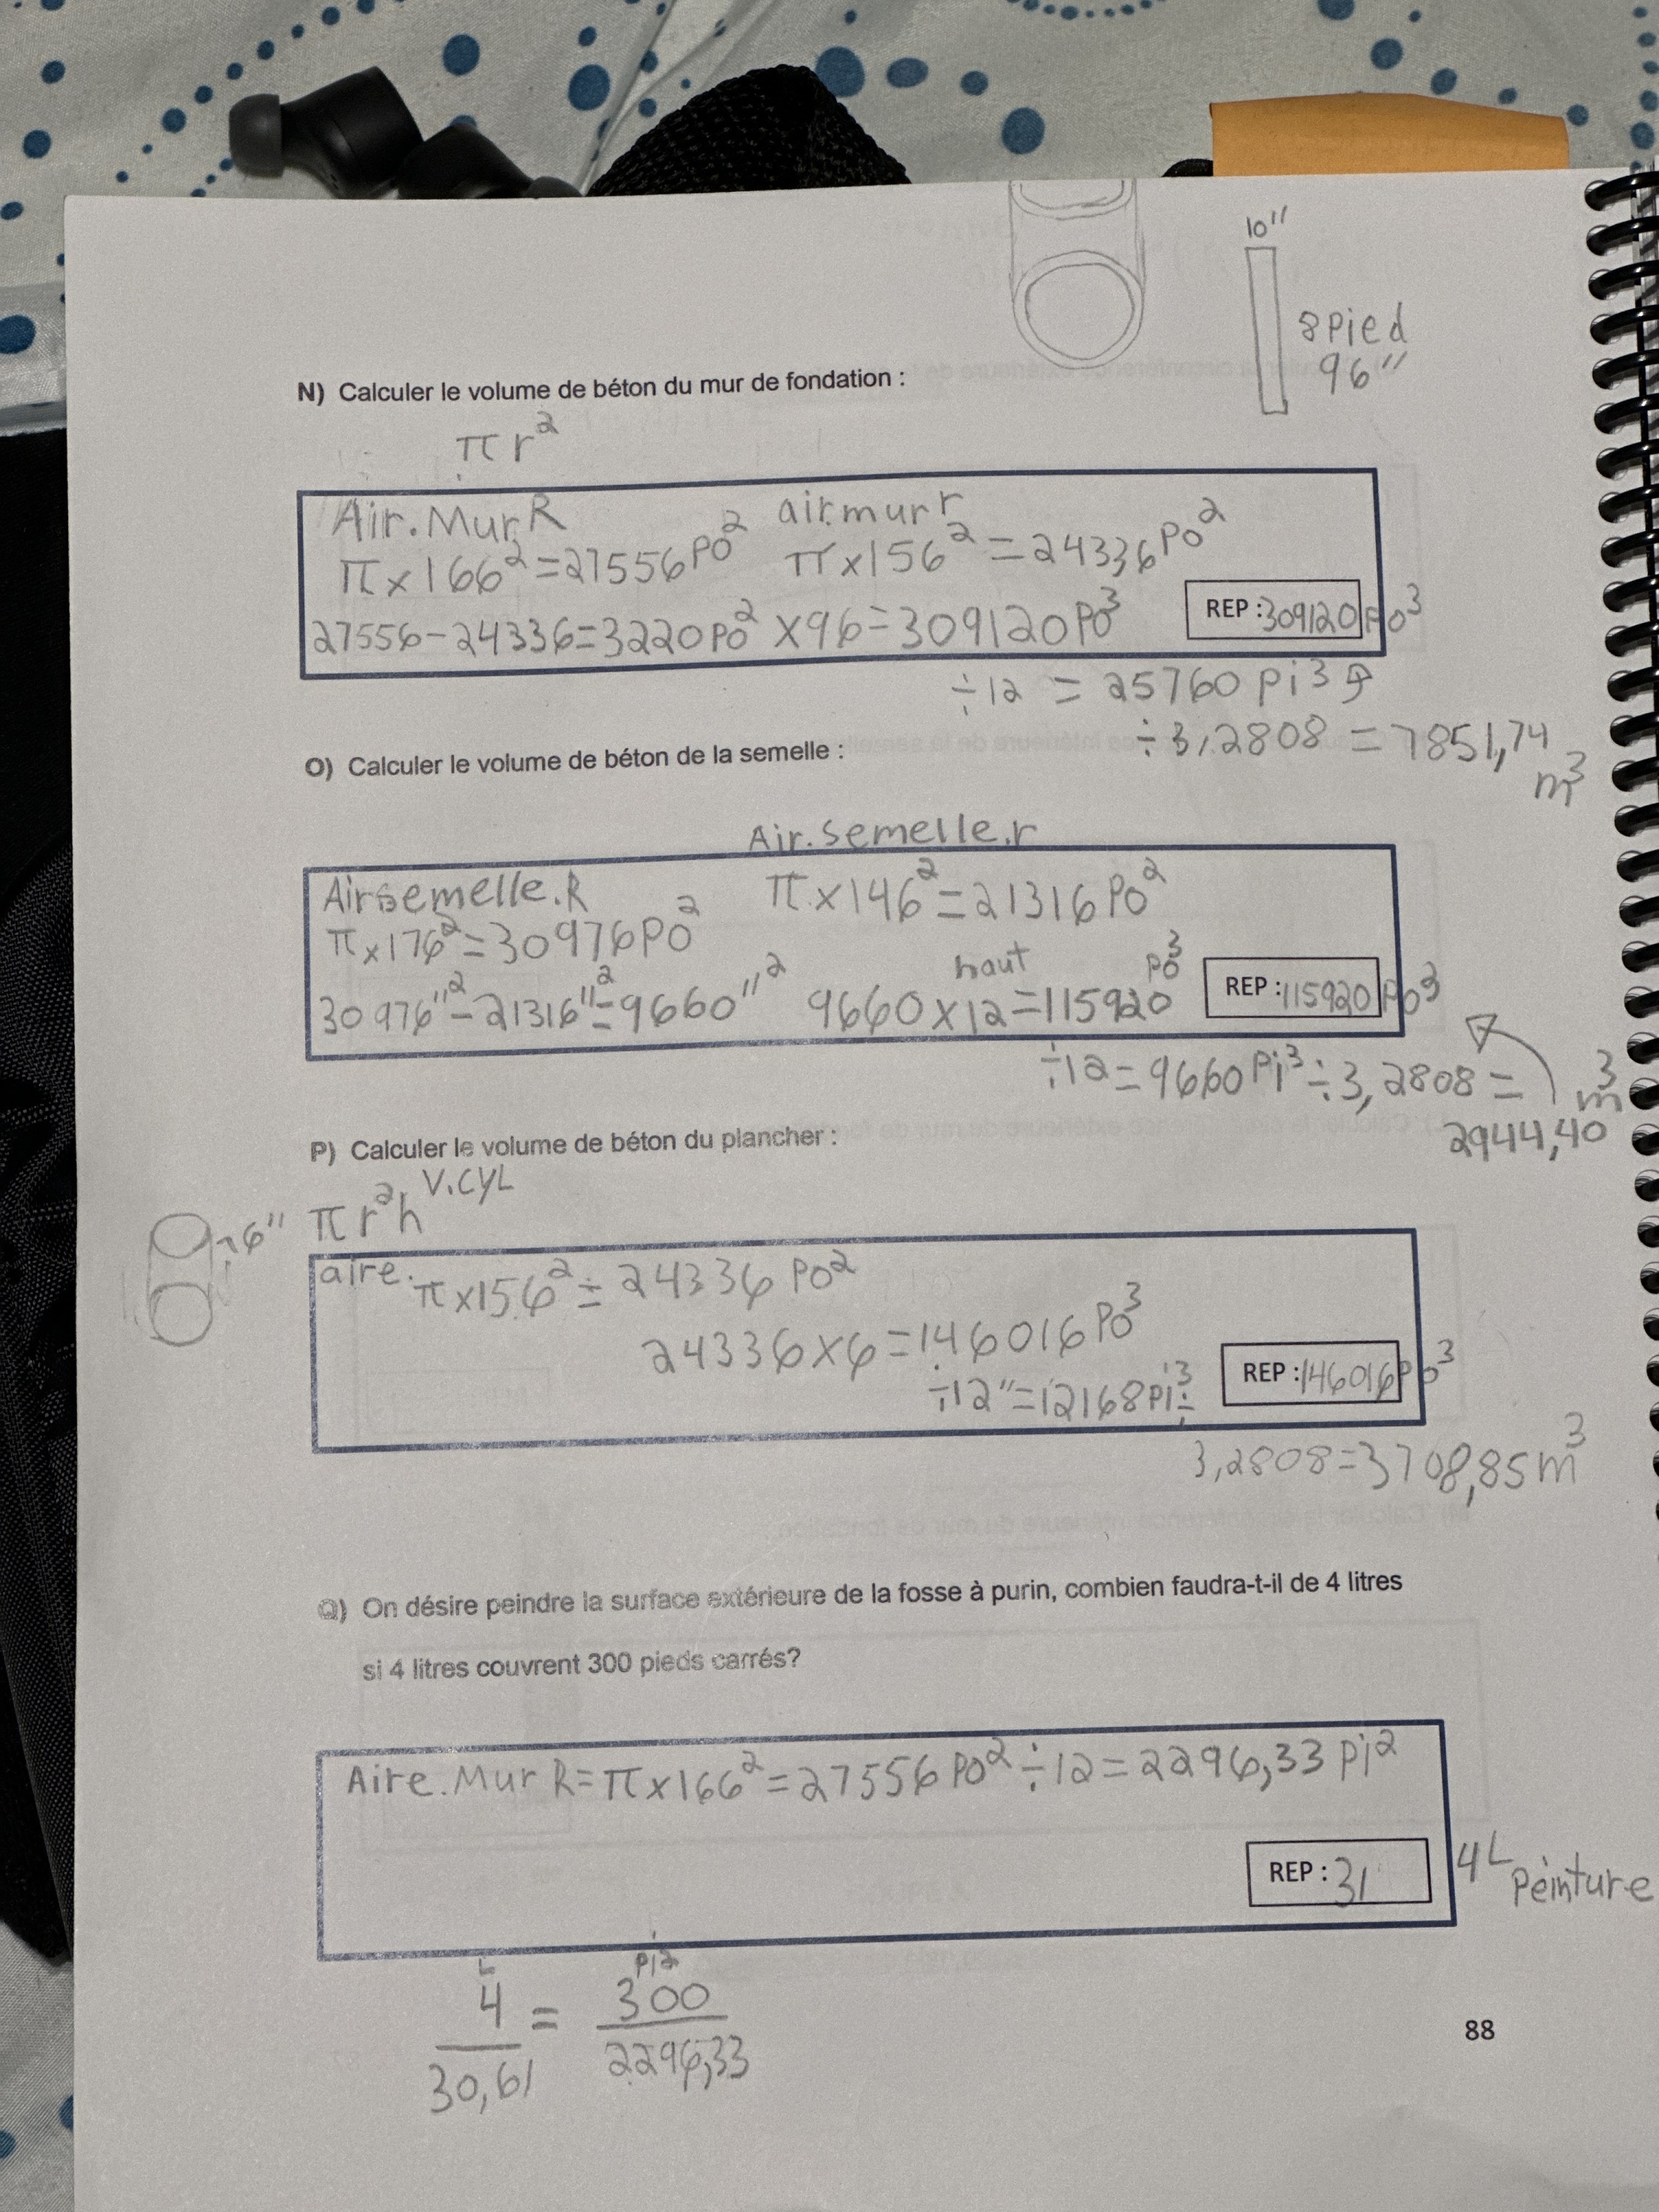 10"
8 pied
96"
N) Calculer le volume de béton du mur de fondation :
π r²
Air.Mur R
π x 166² = 27556 Po²
air.mur r
π x 156² = 24336 Po²
27556 - 24336 = 3220 Po² x 96 = 309120 Po³
REP : 309120 Po³
÷ 12 = 25760 pi³
÷ 3,2808 = 7851,74 m³
O) Calculer le volume de béton de la semelle :
Air.semelle.r
Airsemelle.R
π x 146² = 21316 Po²
π x 176² = 30976 Po²
30976"² - 21316"² = 9660"²
haut
9660 x 12 = 115920 Po³
REP : 115920 Po³
÷ 12 = 9660 Pi³ ÷ 3,2808 =
2944,40 m³
P) Calculer le volume de béton du plancher :
π r² h V.CYL
6"
aire. π x 156² = 24336 Po²
24336 x 6 = 146016 Po³
÷ 12" = 12168 Pi³ ÷
REP : 146016 Po³
3,2808 = 3708,85 m³
Q) On désire peindre la surface extérieure de la fosse à purin, combien faudra-t-il de 4 litres
si 4 litres couvrent 300 pieds carrés?
Aire.Mur R = π x 166² = 27556 Po² ÷ 12 = 2296,33 Pi²
REP : 31
4L Peinture
L
pi2
4 = 300
30,61 2296,33
88